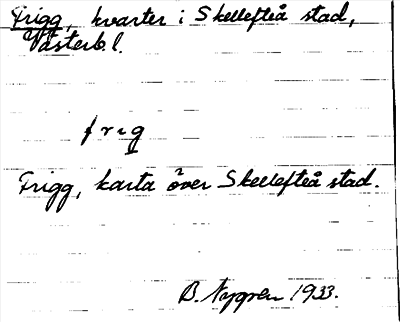 Frigg, kvarter i Skellefteå stad,
Västerb. l.
frig
Frigg, karta över Skellefteå stad.
B. Nygren 1933.